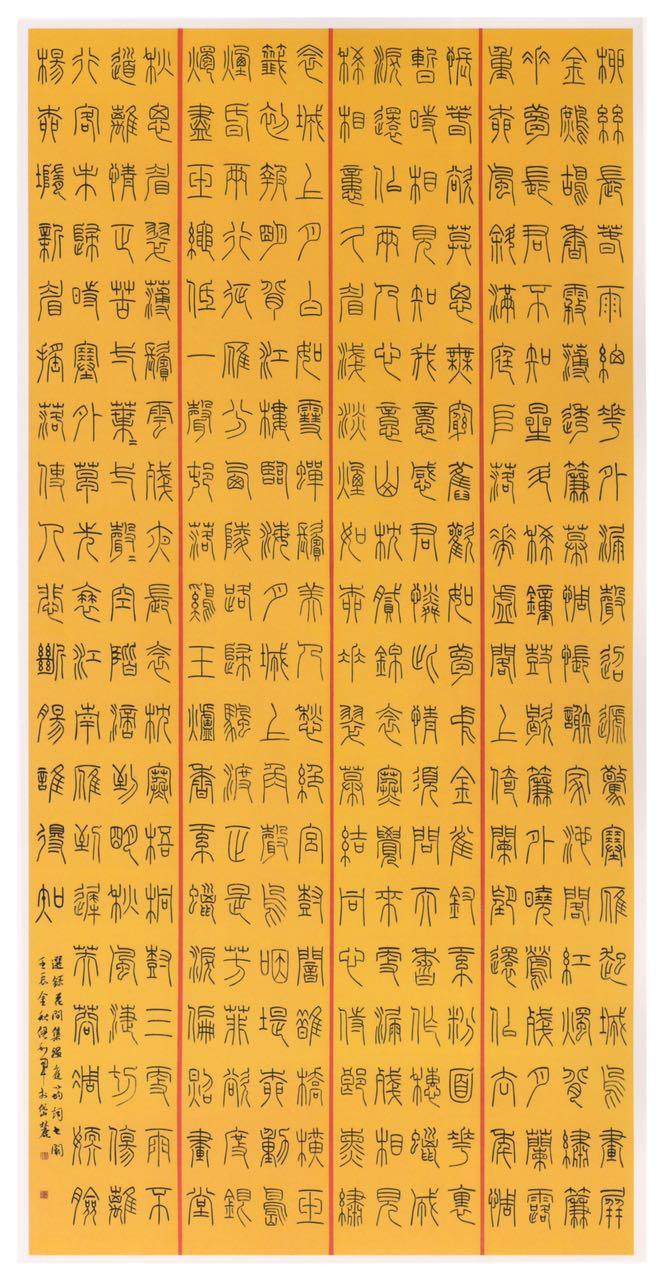 柳絲長春雨細花外漏聲迢遞驚塞雁起城烏畫屏
金鷓鴣香霧薄透簾幕惆悵謝家池閣紅燭背繡簾
垂夢長君不知星斗稀鐘鼓歇簾外曉鶯殘月蘭露
重柳風斜滿庭堆落花虛閣上倚闌望還似去年惆
悵春欲暮思無窮舊歡如夢中金雀釵紅粉面花裏
暫時相見知我意感君憐此情須問天香作穗蠟成
淚還似兩人心意山枕膩錦衾寒覺來更漏殘相見
稀相憶久眉淺淡煙如柳垂翠幕結同心待郎熏繡
衾城上月白如雪蟬鬢美人愁絕宮樹暗鵲橋橫玉
籤初報明背江樓臨海月城上角聲嗚咽堤柳動島
煙昏兩行征雁分西陵路歸帆渡正是芳菲欲度銀
燭盡玉繩低一聲村落雞玉爐香紅蠟淚偏照畫堂
秋思眉翠薄鬢雲殘夜長衾枕寒梧桐樹三更雨不
道離情正苦一葉〻一聲〻空階滴到明秋風淒切傷離
行客未歸時塞外草先衰江南雁到遲芙蓉凋嫩臉
楊柳墮新眉搖落使人悲斷腸誰得知
選錄花間集溫庭筠詞七闋
壬辰金秋 於岱麓